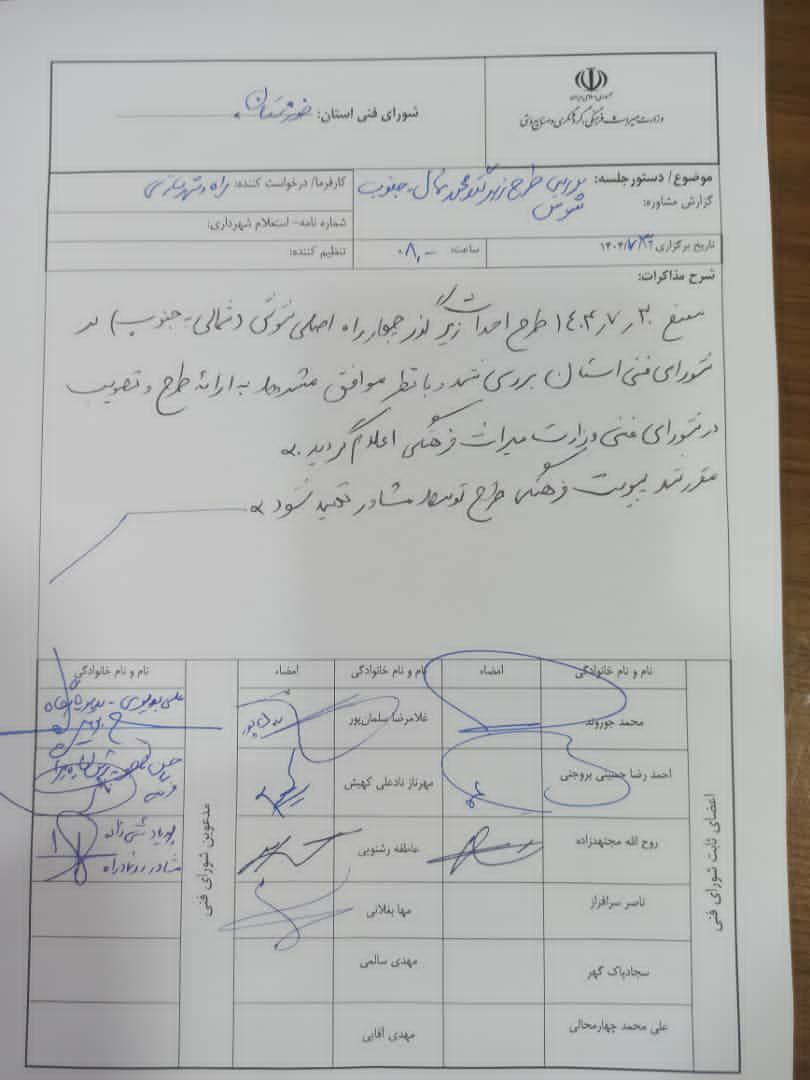 جمهوری اسلامی ایران
وزارت میراث فرهنگی، گردشگری و صنایع دستی
شورای فنی استان: خوزستان
موضوع/ دستور جلسه: بررسی طرح زیرگذر محور شمال - جنوب
شوش
گزارش مشاوره:
کارفرما/ درخواست کننده: راه و شهرسازی
شماره نامه- استعلام شهرداری:
تاریخ برگزاری
ساعت: ۰۸,۰۰
تنظیم کننده:
شرح مذاکرات:
۱۴۰۴٫۷٫۳۰ طرح احداث زیرگذر چهارراه اصلی شوش (شمالی - جنوب) در
شورای فنی استان بررسی شد و با نظر موافق به ارائه طرح و تصویب
در شورای فنی وزارت میراث فرهنگی اعلام گردید.
مقرر شد پیوست فرهنگی طرح توسط مشاور تهیه شود
اعضای ثابت شورای فنی
نام و نام خانوادگی امضاء نام و نام خانوادگی امضاء
محمد جوروند غلامرضا سلمان‌پور
احمد رضا حسینی بروجنی مهرناز نادعلی کهیش
روح الله مجتهدزاده عاطفه رشنویی
ناصر سرافراز مها بغلانی
سجادپاک گهر مهدی سالمی
علی محمد چهارمحالی مهدی آقایی
مدعوین شورای فنی
نام و نام خانوادگی
مشاور